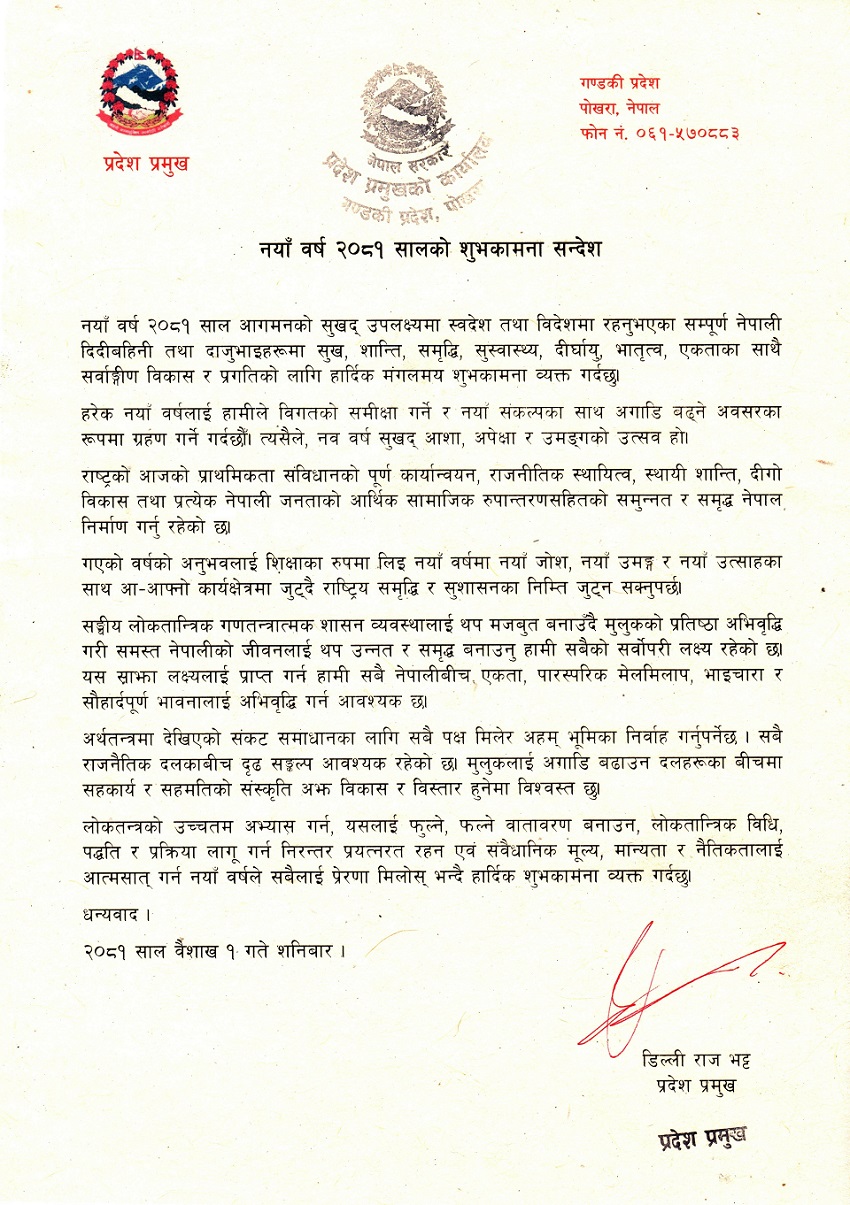 प्रदेश प्रमुख
नेपाल सरकार
प्रदेश प्रमुखको कार्यालय
गण्डकी प्रदेश, पोखरा
गण्डकी प्रदेश
पोखरा, नेपाल
फोन नं. ०६१-५७०८८३
नयाँ वर्ष २०८१ सालको शुभकामना सन्देश
नयाँ वर्ष २०८१ साल आगमनको सुखद् उपलक्ष्यमा स्वदेश तथा विदेशमा रहनुभएका सम्पूर्ण नेपाली
दिदीबहिनी तथा दाजुभाइहरूमा सुख, शान्ति, समृद्धि, सुस्वास्थ्य, दीर्घायु, भातृत्व, एकताका साथै
सर्वाङ्गीण विकास र प्रगतिको लागि हार्दिक मंगलमय शुभकामना व्यक्त गर्दछु।
हरेक नयाँ वर्षलाई हामीले विगतको समीक्षा गर्ने र नयाँ संकल्पका साथ अगाडि बढ्ने अवसरका
रूपमा ग्रहण गर्ने गर्दछौँ। त्यसैले, नव वर्ष सुखद् आशा, अपेक्षा र उमङ्गको उत्सव हो।
राष्ट्रको आजको प्राथमिकता संविधानको पूर्ण कार्यान्वयन, राजनीतिक स्थायित्व, स्थायी शान्ति, दीगो
विकास तथा प्रत्येक नेपाली जनताको आर्थिक सामाजिक रुपान्तरणसहितको समुन्नत र समृद्ध नेपाल
निर्माण गर्नु रहेको छ।
गएको वर्षको अनुभवलाई शिक्षाका रुपमा लिइ नयाँ वर्षमा नयाँ जोश, नयाँ उमङ्ग र नयाँ उत्साहका
साथ आ-आफ्नो कार्यक्षेत्रमा जुट्दै राष्ट्रिय समृद्धि र सुशासनका निम्ति जुट्न सक्नुपर्छ।
सङ्घीय लोकतान्त्रिक गणतन्त्रात्मक शासन व्यवस्थालाई थप मजबुत बनाउँदै मुलुकको प्रतिष्ठा अभिवृद्धि
गरी समस्त नेपालीको जीवनलाई थप उन्नत र समृद्ध बनाउनु हामी सबैको सर्वोपरी लक्ष्य रहेको छ।
यस साझा लक्ष्यलाई प्राप्त गर्न हामी सबै नेपालीबीच एकता, पारस्परिक मेलमिलाप, भाइचारा र
सौहार्दपूर्ण भावनालाई अभिवृद्धि गर्न आवश्यक छ।
अर्थतन्त्रमा देखिएको संकट समाधानका लागि सबै पक्ष मिलेर अहम् भूमिका निर्वाह गर्नुपर्नेछ । सबै
राजनैतिक दलकाबीच दृढ सङ्कल्प आवश्यक रहेको छ। मुलुकलाई अगाडि बढाउन दलहरूका बीचमा
सहकार्य र सहमतिको संस्कृति अझ विकास र विस्तार हुनेमा विश्वस्त छु।
लोकतन्त्रको उच्चतम अभ्यास गर्न, यसलाई फुल्ने, फल्ने वातावरण बनाउन, लोकतान्त्रिक विधि,
पद्धति र प्रक्रिया लागू गर्न निरन्तर प्रयत्नरत रहन एवं संवैधानिक मूल्य, मान्यता र नैतिकतालाई
आत्मसात् गर्न नयाँ वर्षले सबैलाई प्रेरणा मिलोस् भन्दै हार्दिक शुभकामना व्यक्त गर्दछु।
धन्यवाद ।
२०८१ साल वैशाख १ गते शनिबार ।
डिल्ली राज भट्ट
प्रदेश प्रमुख
प्रदेश प्रमुख